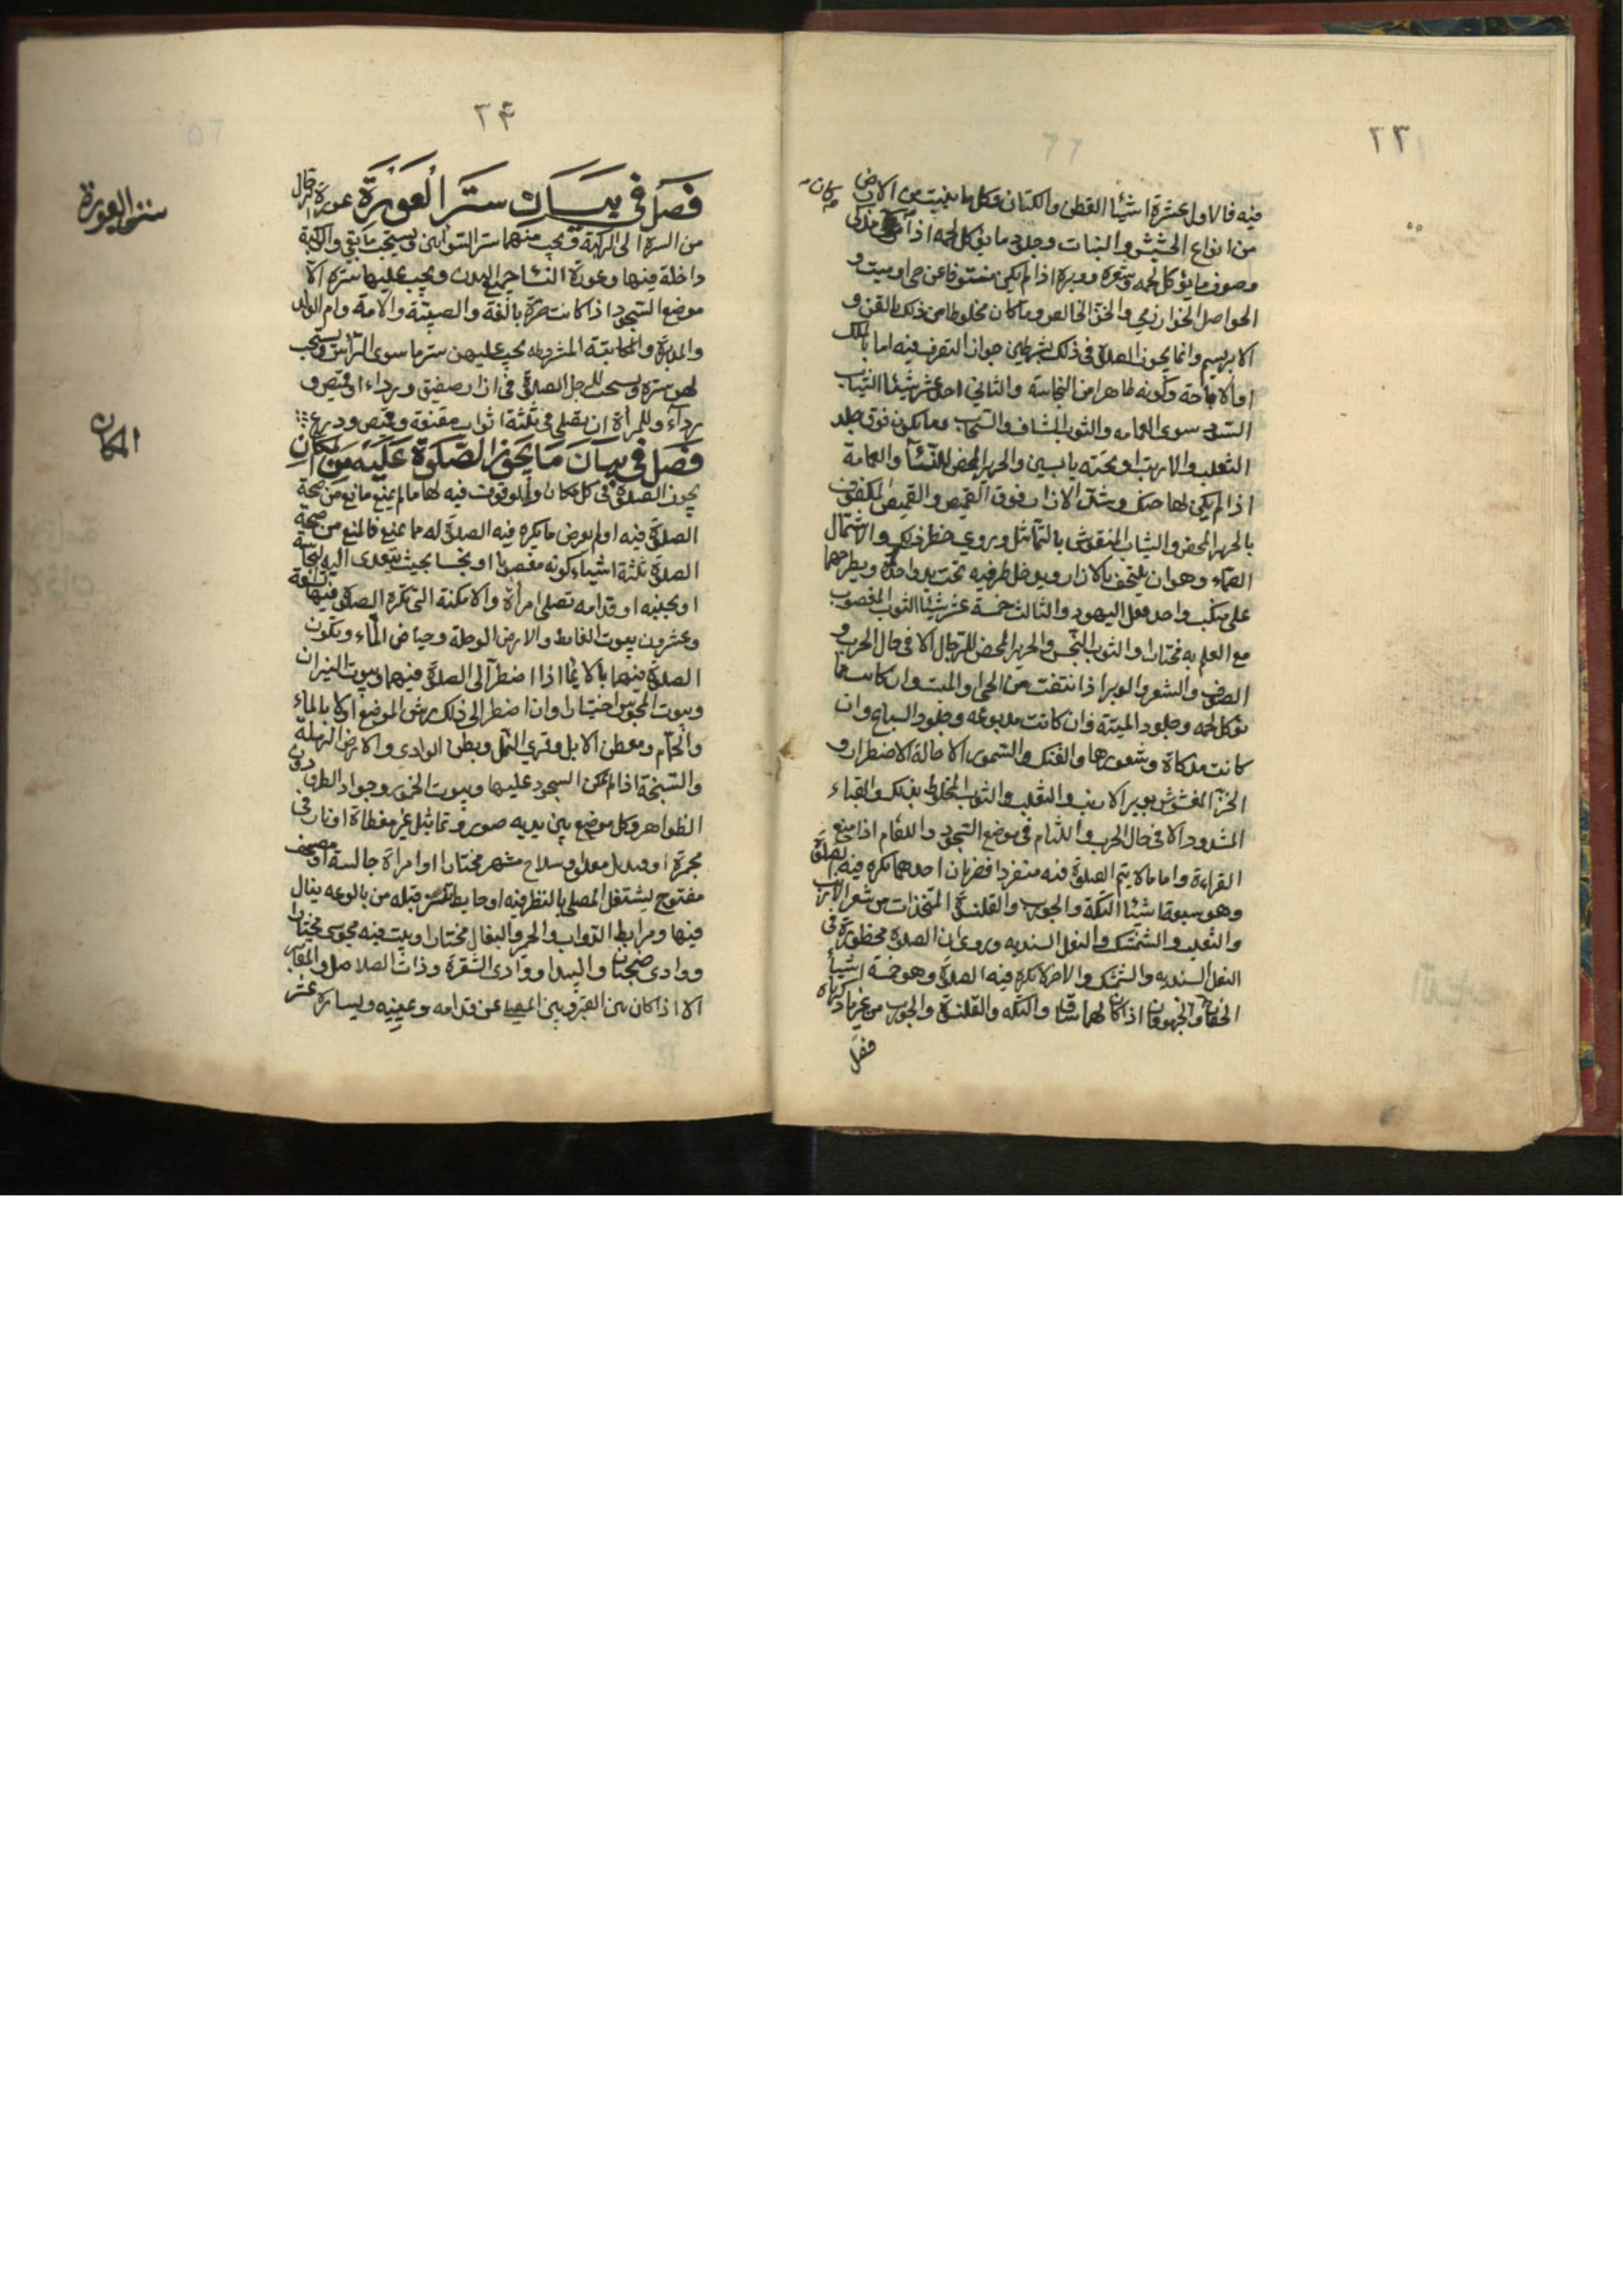 ٢٣
فيه فالاول عشرة اشيئا القطن والكتان وكل ما ينبت من الارض
من انواع الحشيش والنبات وجلود ما يؤكل لحمه اذا ذكى
وصوف ما يؤكل لحمه وشعره ووبره اذا لم يكن منتوفا عن حى او ميت و
الحواصل الخوارزمى والخز الخالص وما كان مخلوطا من ذلك بالقز و
الابريسم وانما يجوز الصلوة فى ذلك بشرطين جواز التصرف فيه اما بالملك
او الاباحة وكونه طاهرا من النجاسة والثانى احد عشر شيئا الثياب
السود سوى العمامه والثوب الشاف والسنجاب وما يكون فوق جلد
الثعلب والارنب او تحته يابسين والحرير المحض للنسآ والعمامة
اذا لم يكن لها حنك وشد الازار فوق القميص والقميص المكفوف
بالحرير المحض والثياب المنقوش بالتماثيل وروى حظر ذلك والاشتمال
الصماء وهو ان يلتحف بالازار ويدخل طرفيه تحت يد واحدة ويطرحهما
على منكب واحد فعل اليهود والثالث خمسة عشر شيئا الثوب المغصوب
مع العلم به مختارا والثوب النجس والحرير المحض للرجال الا فى حال الحرب و
الصوف والشعر والوبر اذا نتفت من الحى او الميت وان كانت مما
يؤكل لحمه وجلود الميتة وان كانت مدبوغه وجلود السباع وان
كانت مذكاة وشعورها والفنك والسمور الا حالة الاضطرار و
الخز المغشوش بوبر الارنب والثعلب والثوب المخلوط بذلك والقباء
المشدود الا فى حال الحرب واللثام فى موضع السجود واللثام اذا منع
القراءة واما ما لا يتم الصلوة فيه منفردا فضربان احدهما تكره فيه الصلوة
وهو سبعة اشيئا التكة والجورب والقلنسوة المتخذات من شعر الارنب
والثعلب والشمشك والنعل السنديه وروى ان الصلوة محظورة فى
النعل السنديه والشمشك والاخر لا تكره فيه الصلوة وهو خمسة اشيئا
الخفان والجرموقان اذا كان لهما ساق والتكه والقلنسوة والجورب من غير ما ذكرناه
فصل
٢٤
فصل فى بيان ستر العورة عورة الرجال
من السرة الى الركبة ويجب منهما ستر السوأتين ويستحب ما بقى والركبة
داخلة فيها وعورة النسا جميع البدن ويجب عليها ستره الا
موضع السجود اذا كانت حرة بالغة والصبية والامة وام الولد
والمدبرة والمكاتبة المشروطه يجب عليهن ستر ما سوى الرأس ويستحب
لهن ستره ويستحب للرجل الصلوة فى ازار صفيق ورداء او قميص و
رداء وللمرأة ان تصلى فى ثلثة اثواب مقنعة وقميص ودرع
فصل فى بيان ما يجوز الصلوة عليه من المكان
يجوز الصلوة فى كل مكان فيه لها ما لم يمنع مانع من صحة
الصلوة فيه او لم يعرض ما يكره فيه الصلوة له مما يمنع فالمنع من صحة
الصلوة ثلثة اشياء كونه مغصوبا او نجسا بحيث يتعدى اليه النجاسة
او بجنبه او قدامه تصلى امرأة والامكنة التى تكره الصلوة فيها تسعة
وعشرون بيوت الغايط والارض الوحلة وحياض الماء ويكون
الصلوة فيهما بالايما اذا اضطر الى الصلوة فيهما وبيوت النيران
وبيوت المجوس اختيارا وان اضطر الى ذلك رش الموضع اولا بالماء
والحمام ومعطن الابل وقرى النمل وبطن الوادى والارض الرملة
والسبخة اذا لم يمكن السجود عليها وبيوت الخمور وجواد الطرق دون
الظواهر وكل موضع بين يديه صور وتماثيل غير مغطاة او نار فى
مجمرة او قنديل معلق او سلاح مشهر مختارا او امرأة جالسة او مصحف
مفتوح ليشتغل المصلى بالنظر فيه او حايط قبله من بالوعه يبال
فيها ومرابط الدواب والحمر والبغال مختارا وبيت فيه مجوسى مختارا
ووادى ضجنان والبيدا ووادى الشقرة وذات الصلاصل والمقابر
الا اذا كان بين القبر وبين المصلى عن قدامه ويمينه ويساره عشر
ستر العورة
المكان